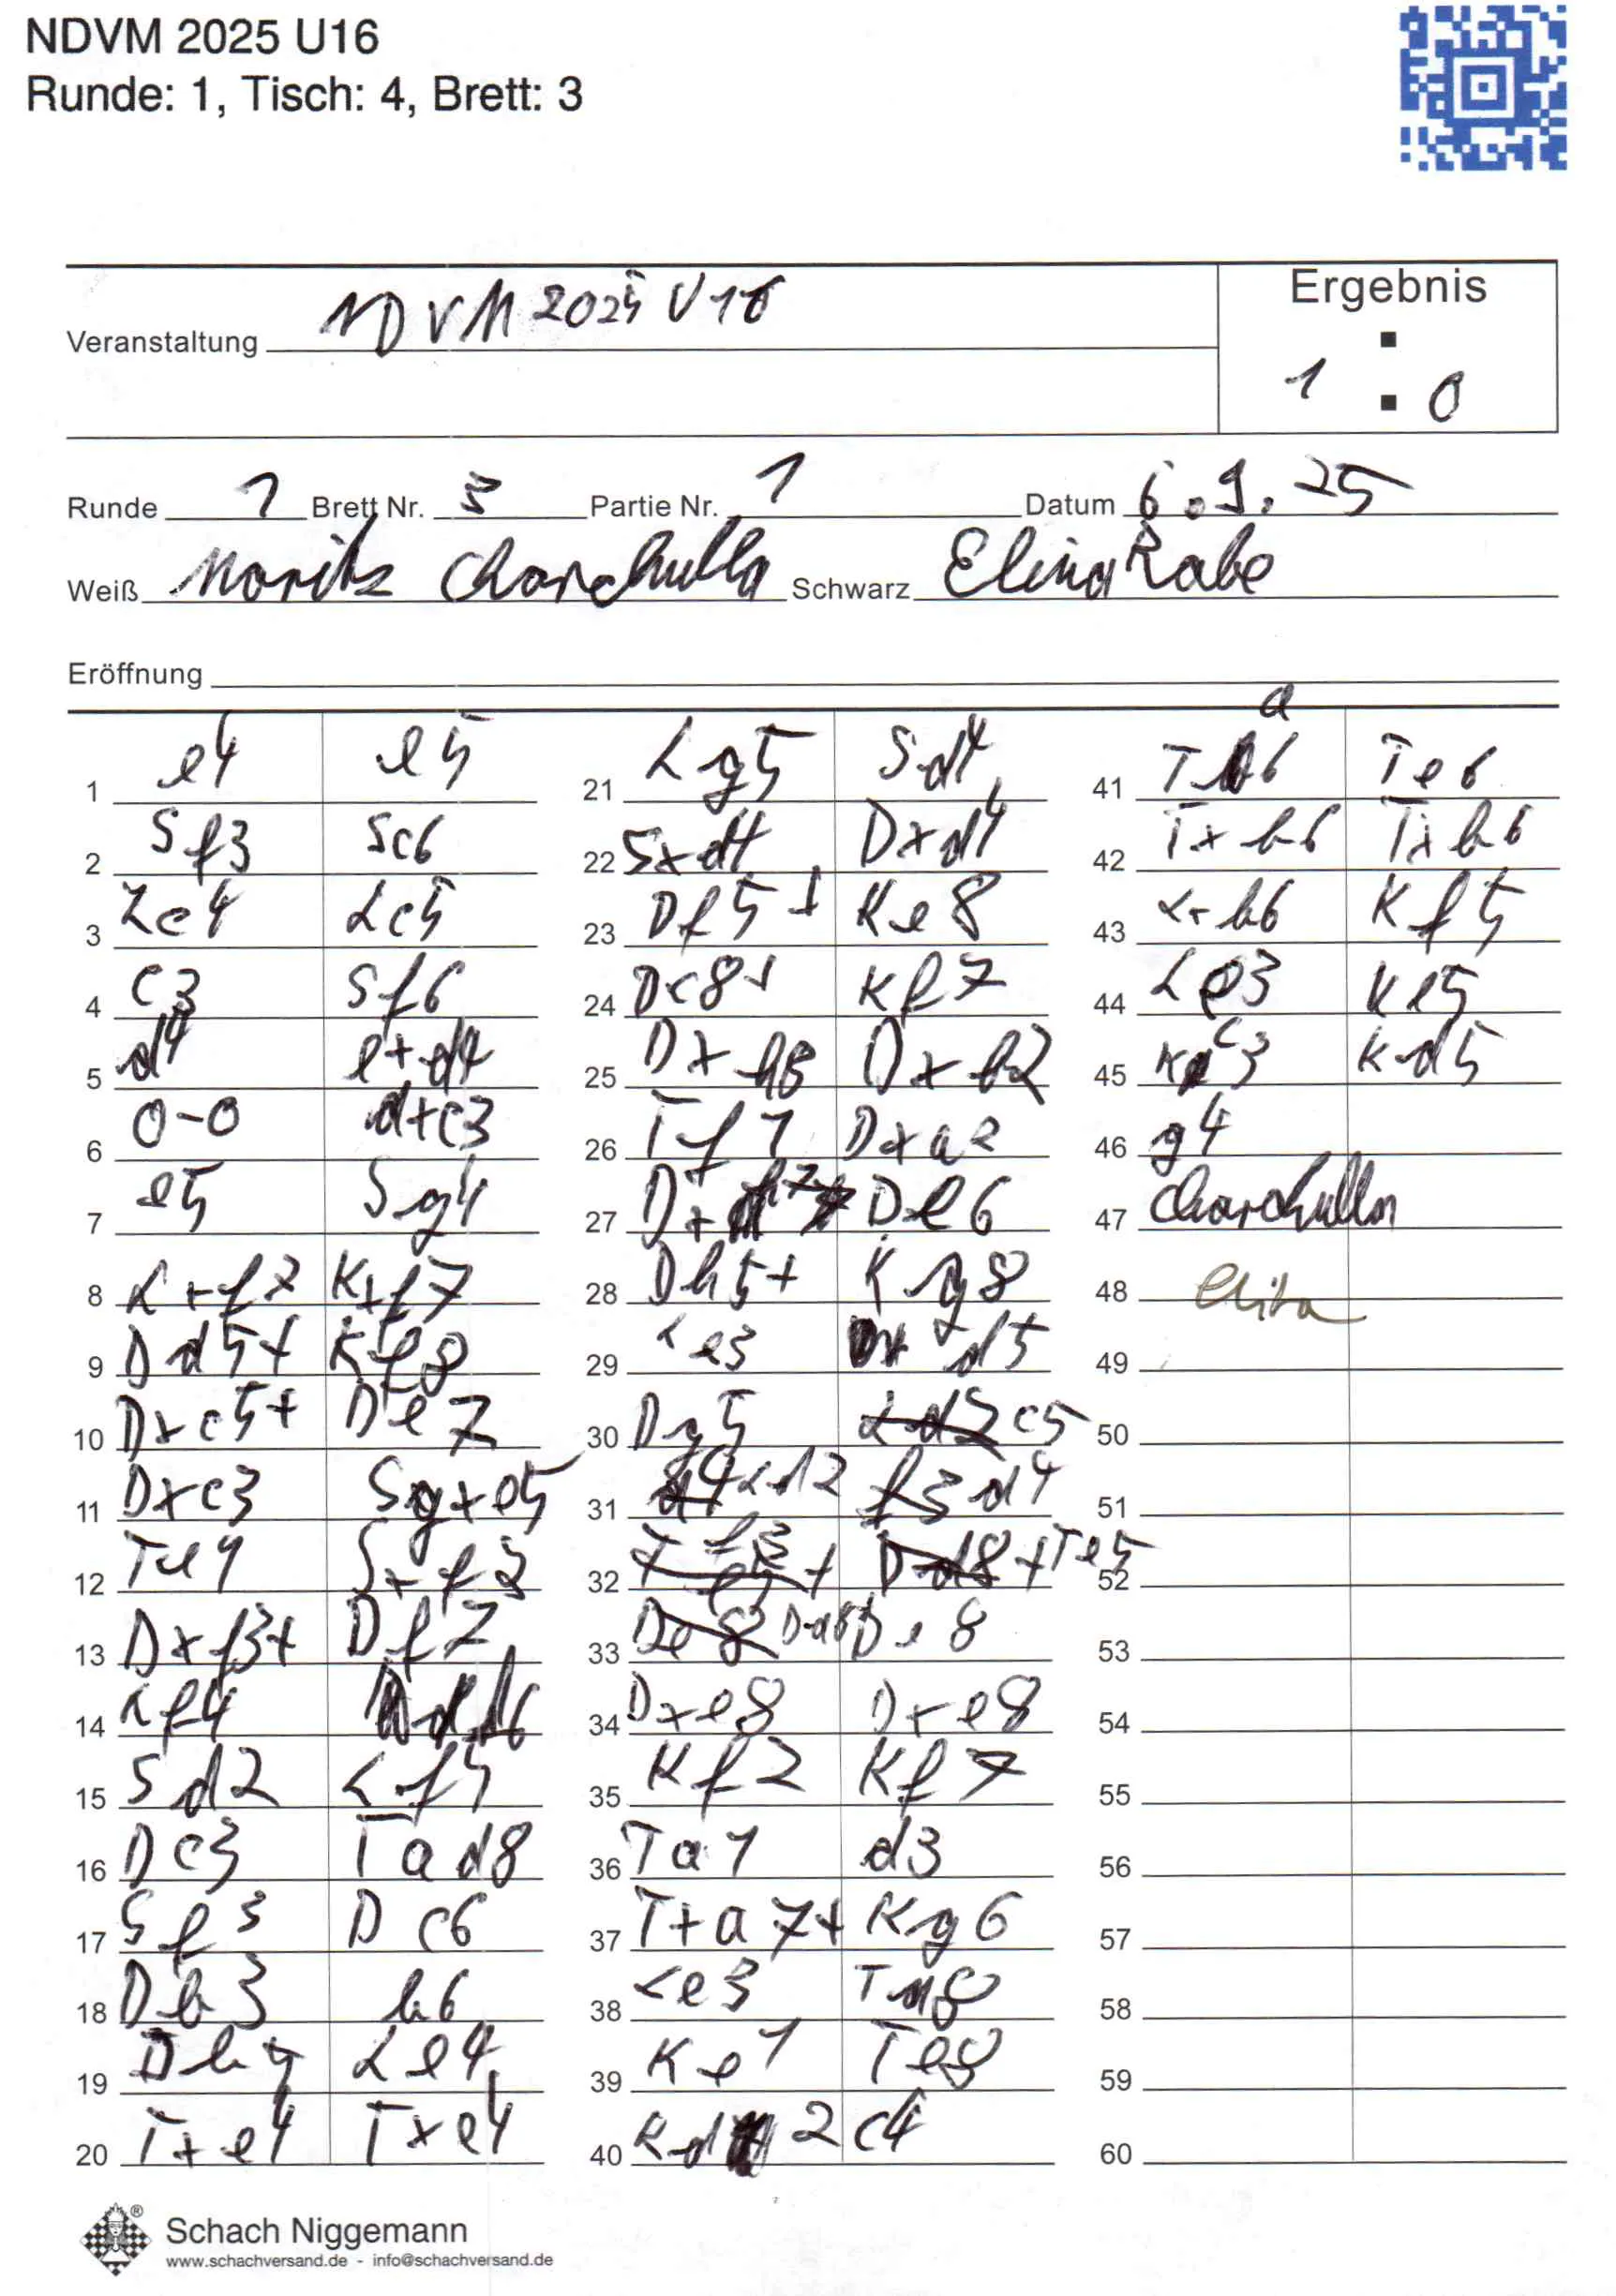 NDVM 2025 U16
Runde: 1, Tisch: 4, Brett: 3
Ergebnis
Veranstaltung NDVM 2025 U16
1 : 0
Runde 1 Brett Nr. 3 Partie Nr. 1 Datum 6.9.25
Weiß Moritz Charchulla Schwarz Elina Rabe
Eröffnung
1 e4 e5
2 Sf3 Sc6
3 Lc4 Lc5
4 c3 Sf6
5 d4 exd4
6 0-0 dxc3
7 e5 Sg4
8 Lxf7 Kxf7
9 Dd5+ Kf8
10 Dxc5+ De7
11 Dxc3 Sgxe5
12 Te1 Sxf3
13 Dxf3+ Df7
14 Lf4
15 Sd2 Lf5
16 Dc3 Tad8
17 Sf3 Dc6
18 Db3 h6
19 Db4 Le4
20 Txe4 Txe4
21 Lg5 Sd4
22 Sxd4 Dxd4
23 Df5+ Ke8
24 Dc8+ Kf7
25 Dxh8 Dxb2
26 Tf1 Dxa2
27 Dxh7 De6
28 Dh5+ Kg8
29 Le3 d5
30 Dg5 c5
31 Ld2 d4
32 f3 Te5
33 Dd8+ De8
34 Dxe8 Dxe8
35 Kf2 Kf7
36 Ta1 d3
37 Txa7+ Kg6
38 Le3
39 Ke1 Te8
40 Kd2 c4
41 Ta6 Te6
42 Txb6 Txb6
43 Lxb6 Kf5
44 Le3 Ke5
45 Kc3 Kd5
46 g4
47 Charchulla
48 Elina
49
50
51
52
53
54
55
56
57
58
59
60
Schach Niggemann
www.schachversand.de - info@schachversand.de